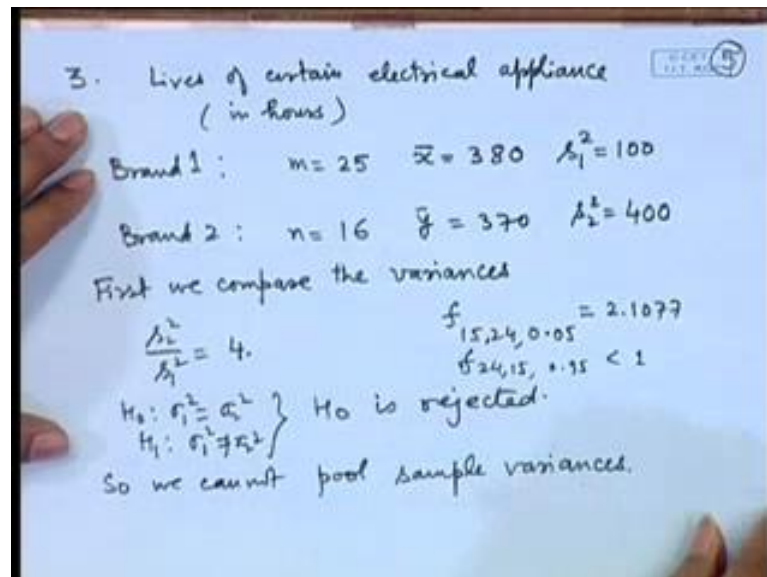 3. Lives of certain electrical appliance
(in hours)
5
Brand 1 : m = 25 x̄ = 380 s₁² = 100
Brand 2 : n = 16 ȳ = 370 s₂² = 400
First we compare the variances
s₂²/s₁² = 4.
f 15,24, 0.05 = 2.1077
f 24,15, 0.95 < 1
H₀: σ₁² = σ₂² } H₀ is rejected.
H₁: σ₁² ≠ σ₂²
So we cannot pool sample variances.